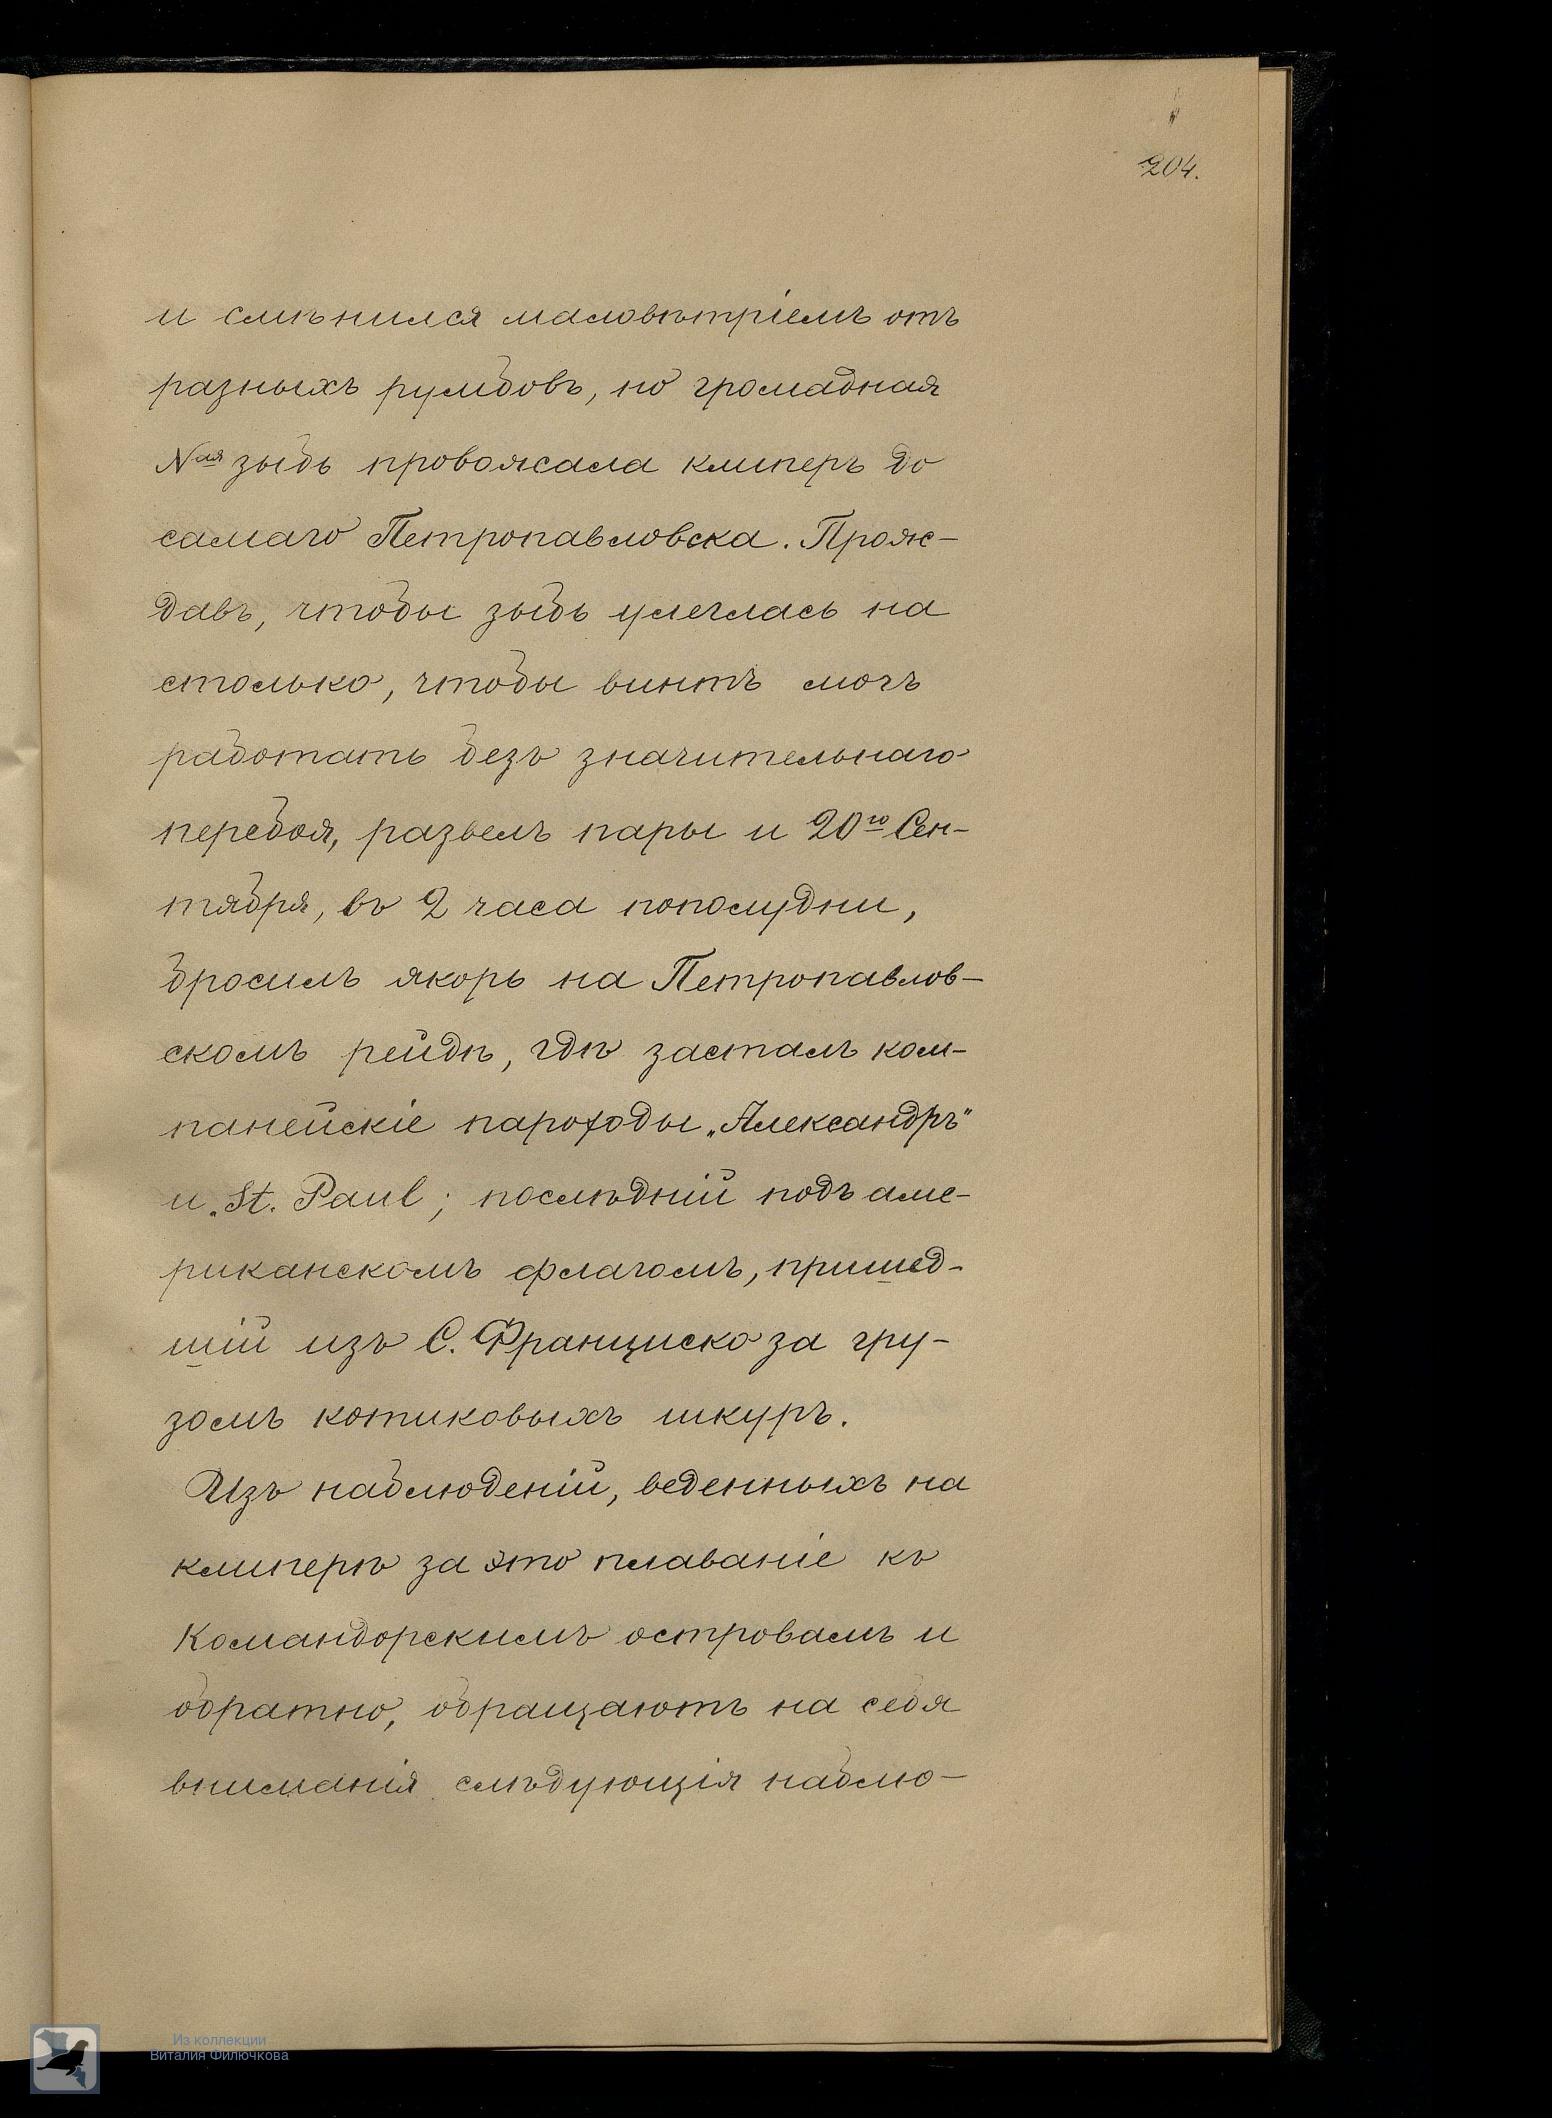 204.
и смѣнился маловѣтріемъ отъ
разныхъ румбовъ, но громадная
Nая зыбь провожала клиперъ до
самаго Петропавловска. Прож-
давъ, чтобы зыбь улеглась на
столько, чтобы винтъ могъ
работать безъ значительнаго
перебоя, развелъ пары и 20го Сен-
тября, въ 2 часа пополудни,
бросилъ якорь на Петропавлов-
скомъ рейдѣ, гдѣ засталъ ком-
панейскіе пароходы „Александръ"
и „St. Paul; послѣдній подъ аме-
риканскомъ флагомъ, пришед-
шій изъ С. Франциско за гру-
зомъ котиковыхъ шкуръ.
Изъ наблюденій, веденныхъ на
клиперѣ за это плаваніе къ
Командорскимъ островамъ и
обратно, обращаютъ на себя
вниманія слѣдующія наблю-
Из коллекции
Виталия Филючкова